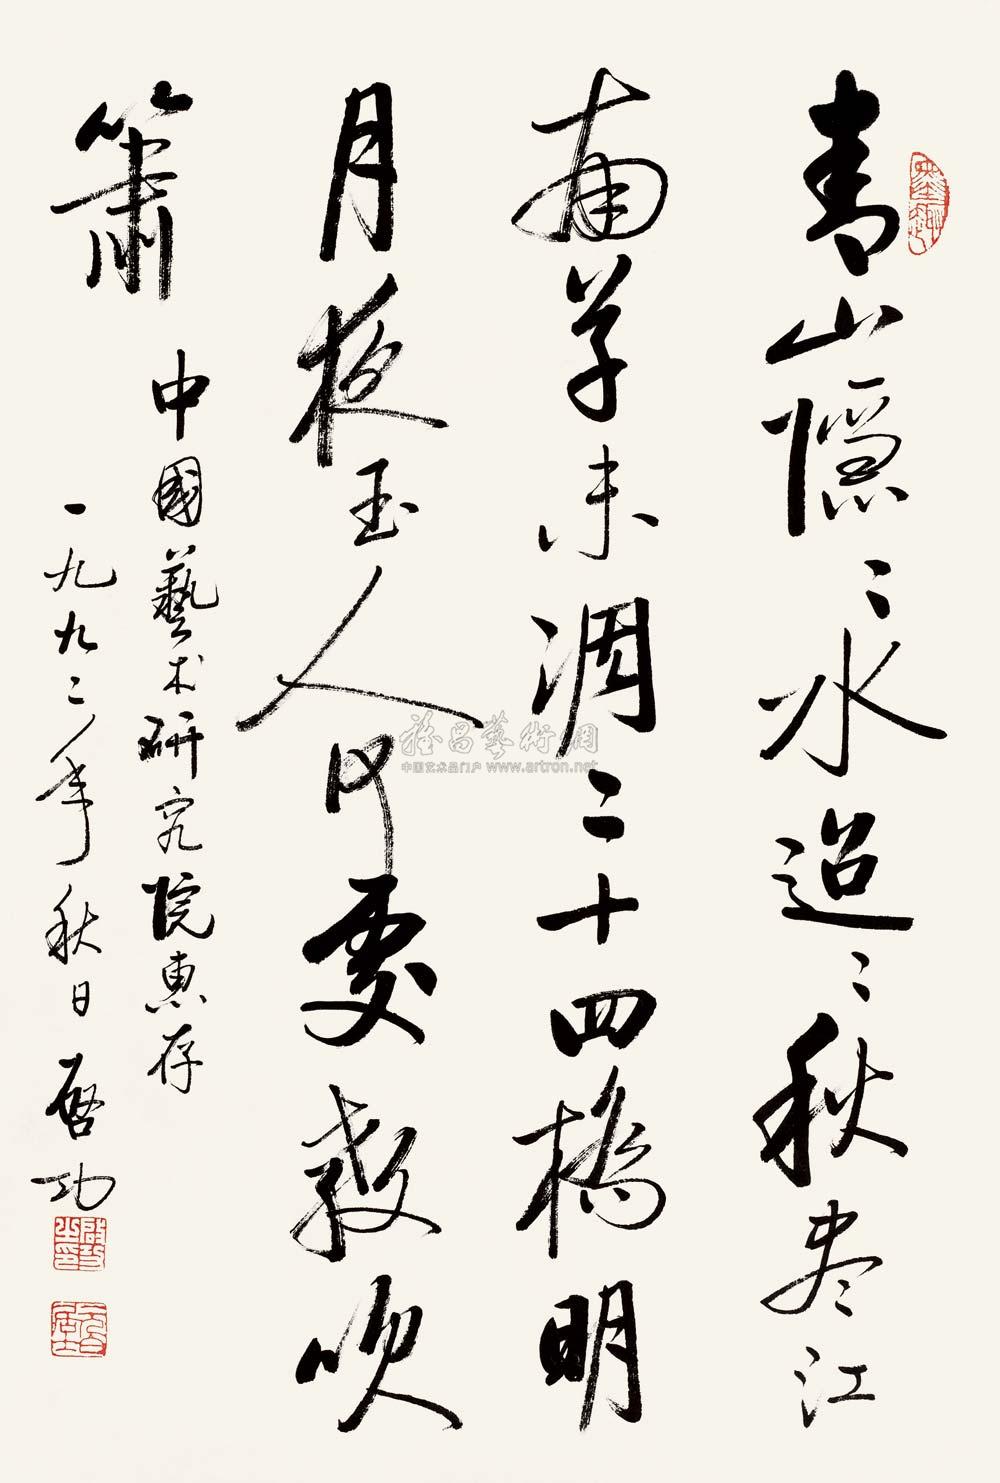 青山隱〻水迢〻秋尽江
南草未凋二十四橋明
月夜玉人何處教吹
簫
中國藝术研究院惠存
一九九二年秋日 啓功
雅昌藝術網
中国艺术品门户 www.artron.net